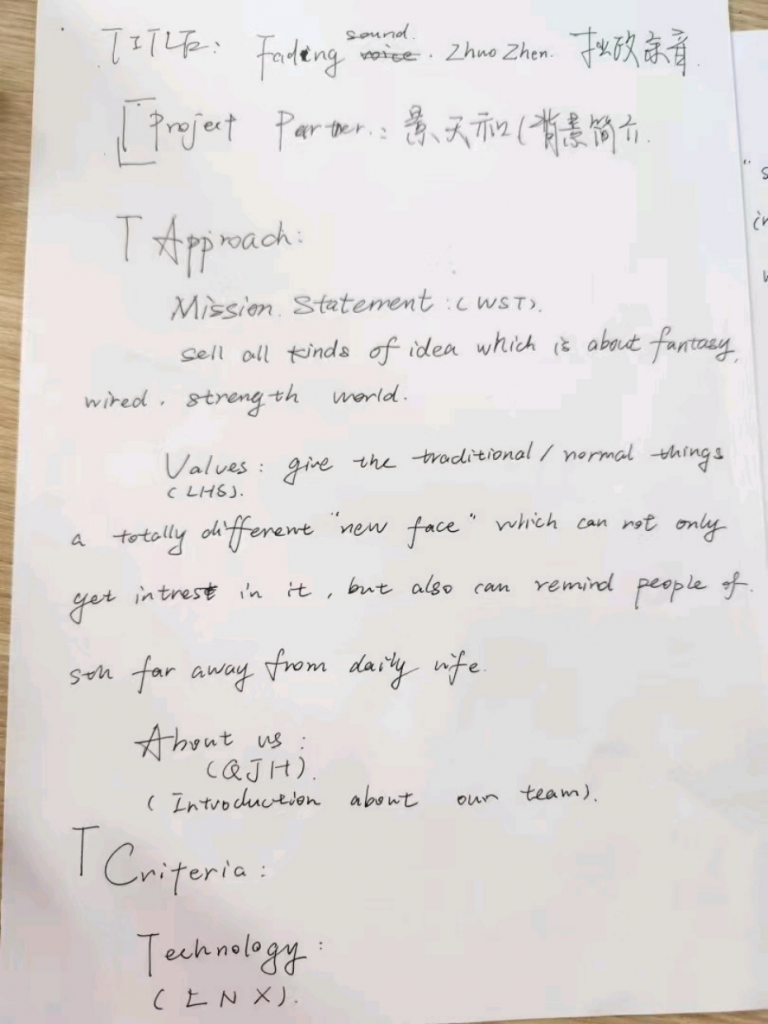 TITLE: Fading sound voice. Zhuo Zhen. 余音
Project Partner.: 景天和(背景简介.
Approach:
Mission Statement:(WST).
sell all kinds of idea which is about fantasy,
wired. strength world.
Values: give the traditional/normal things
(LHS).
a totally different "new face" which can not only
get intrest in it, but also can remind people of
far away from daily
About us:
(QJH).
(Introduction about our team).
Criteria:
Technology:
(LNX).